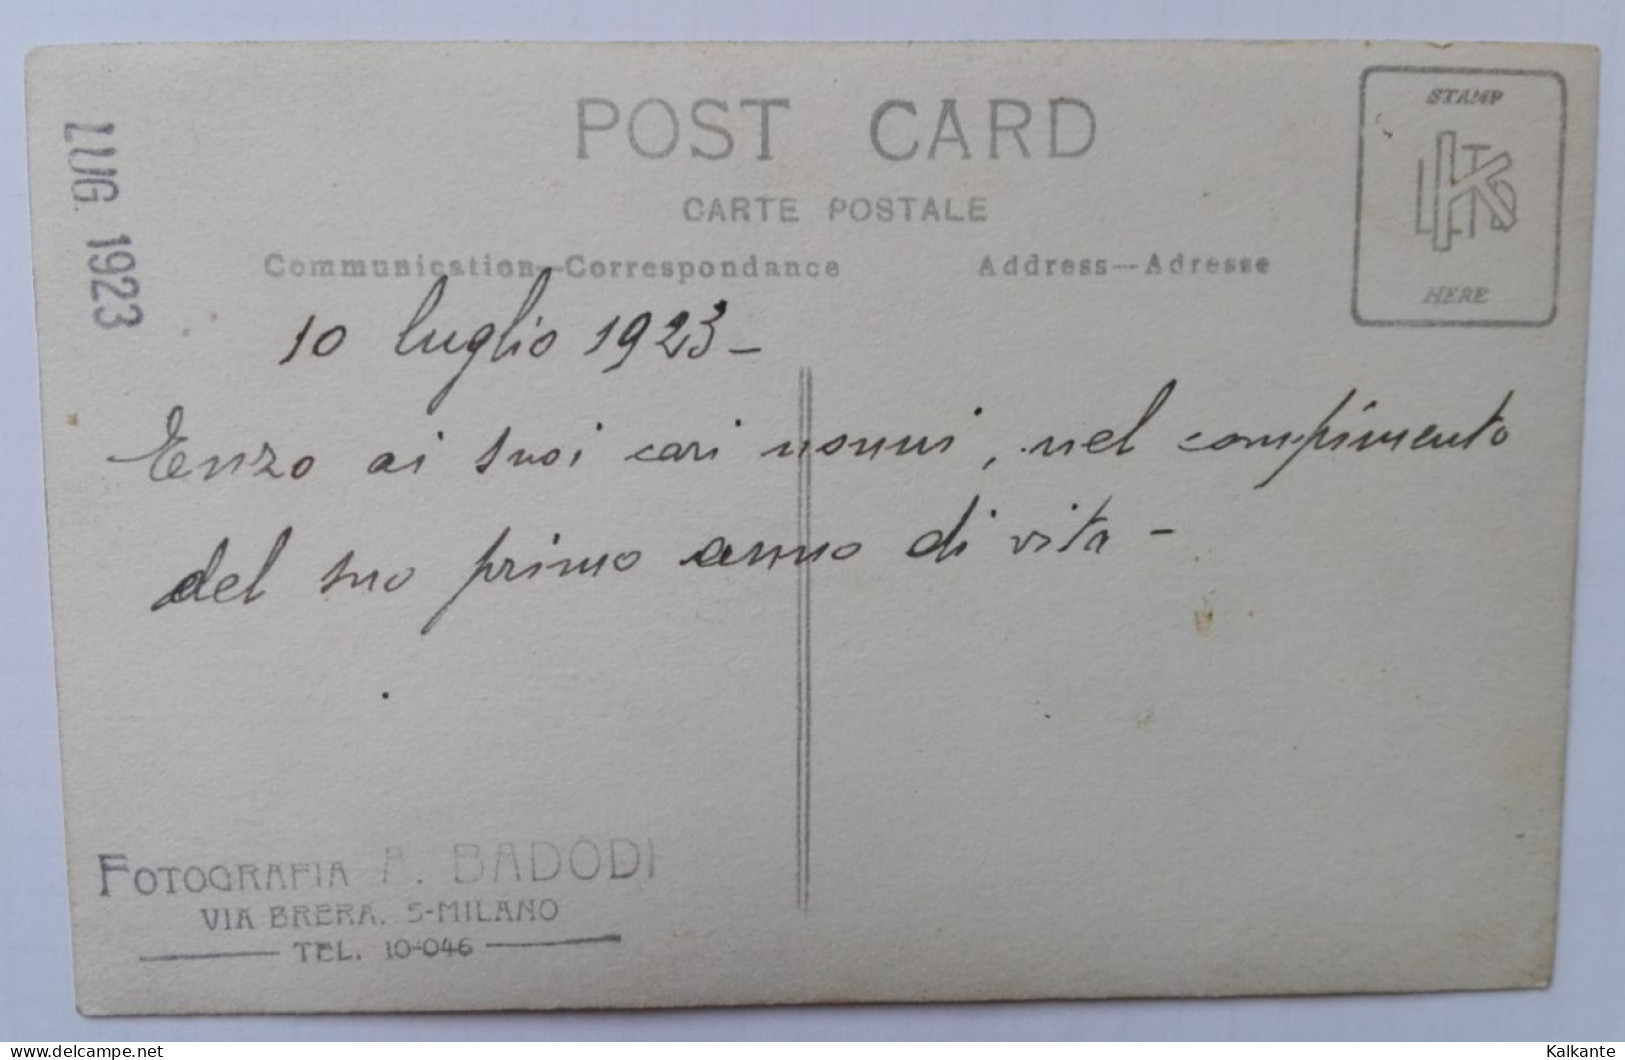 LUG. 1923
POST CARD
CARTE POSTALE
Communication—Correspondance
Address—Adresse
STAMP
KLTD
HERE
10 luglio 1923 -
Enzo ai suoi cari nonni, nel compimento
del suo primo anno di vita -
FOTOGRAFIA A. BADODI
VIA BRERA. 5-MILANO
TEL. 10-046
delcampe.net
Kalkante